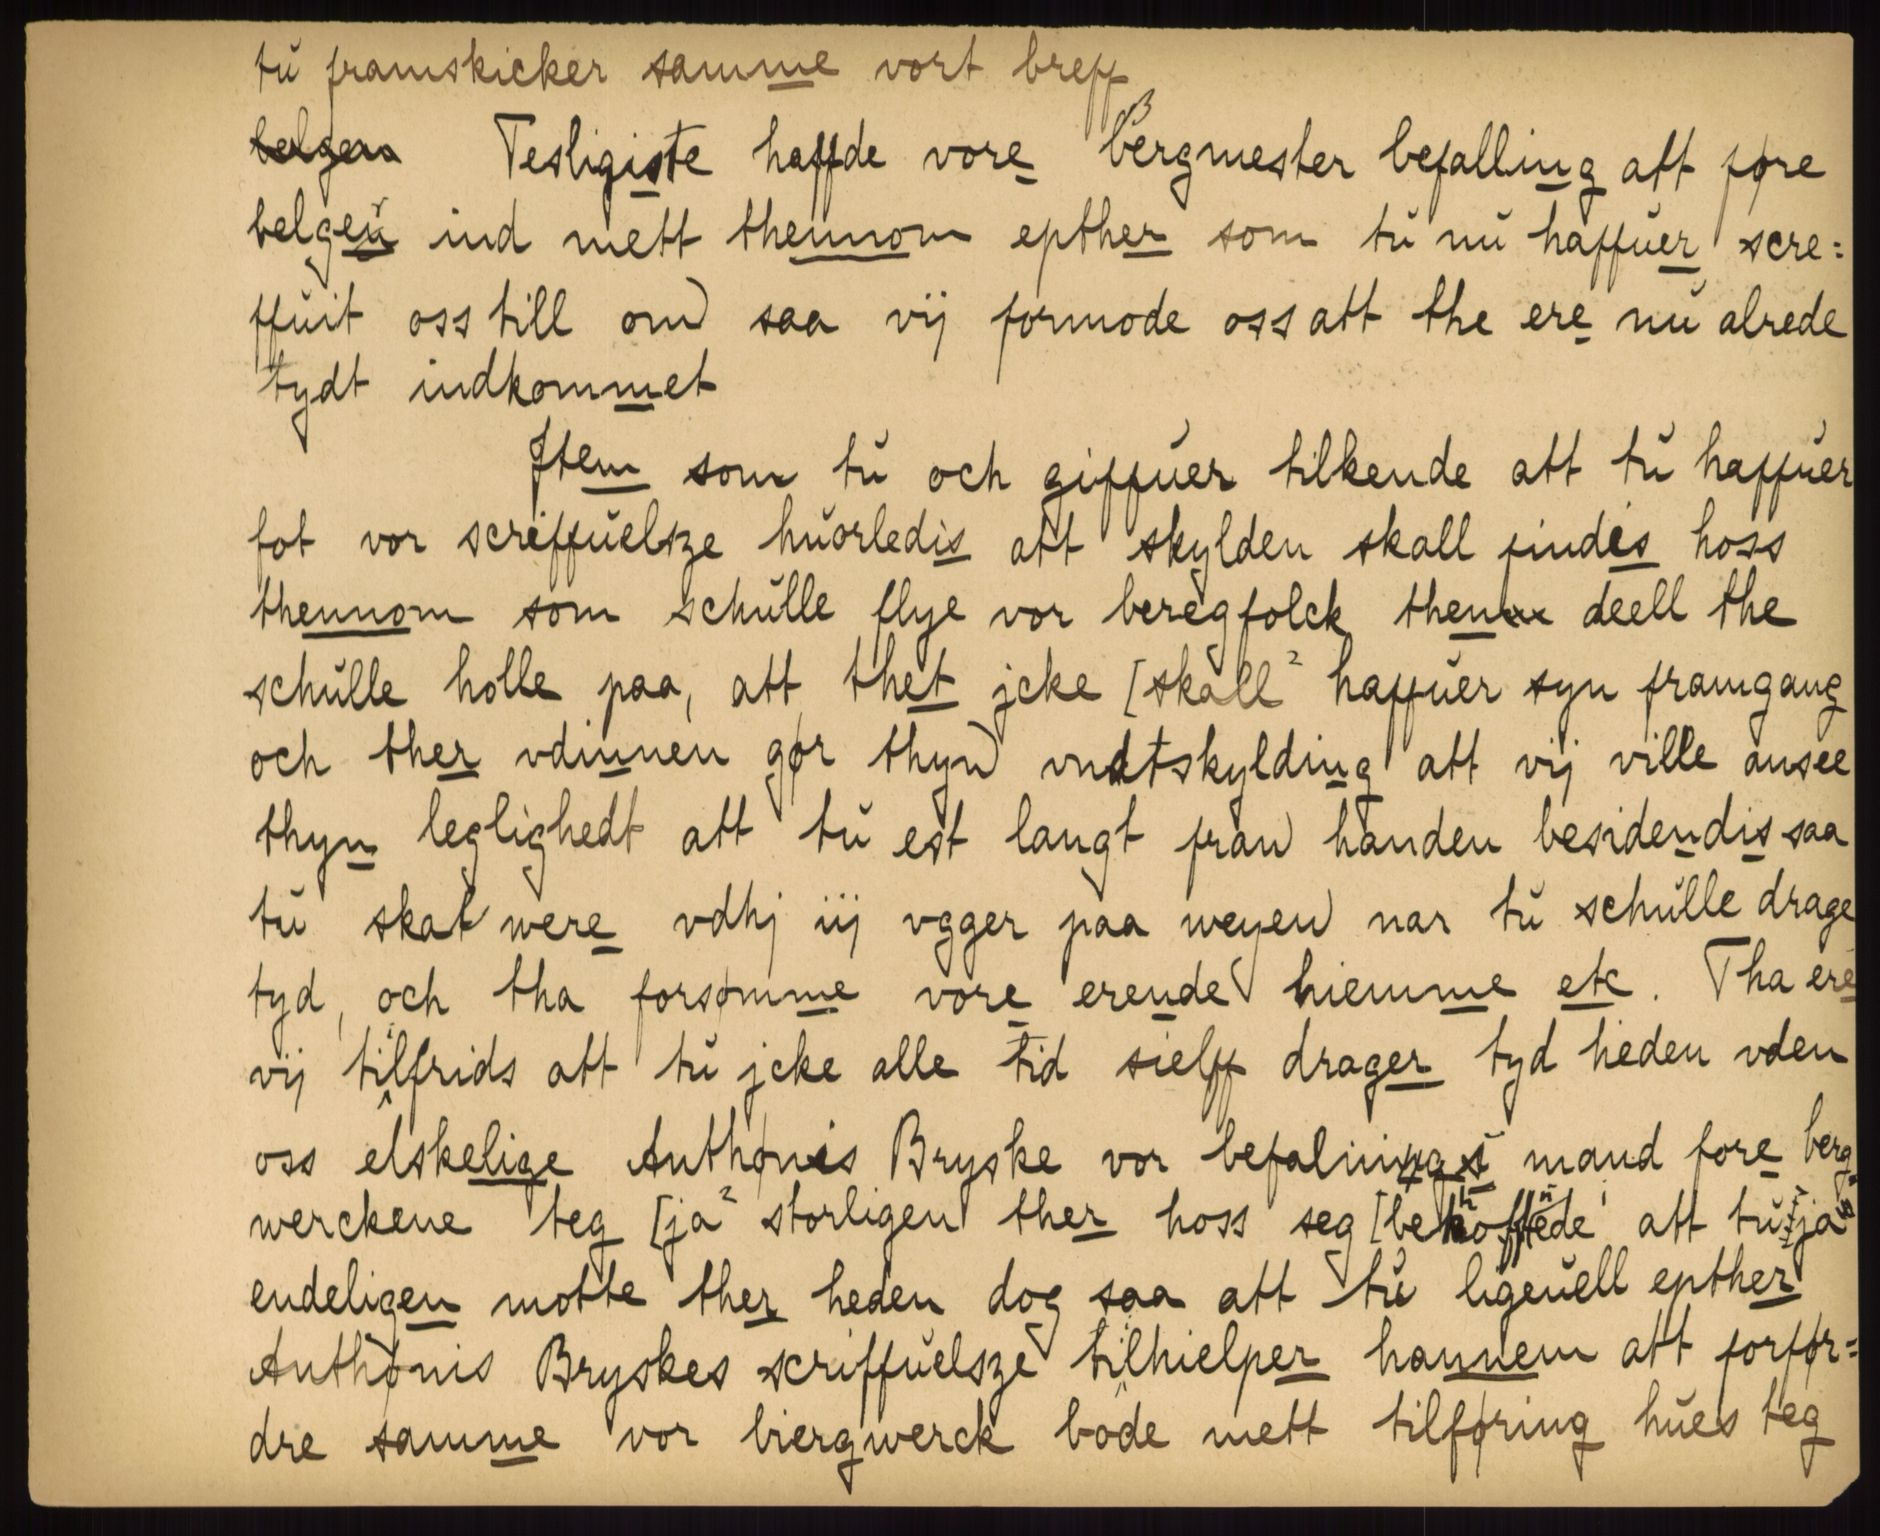 tŭ framskicker samme vort breff
belgen Tesligiste haffde vore Bergmester befalling att føre
belgen ind mett thennom epther som tŭ nŭ haffŭer scre=
ffuit oss till om saa vij formode oss att the ere nŭ alrede
tydt indkommet
Jtem som tŭ och giffŭer tilkende att tŭ haffŭer
fot vor scriffŭelsze hŭorledis att skylden skall findis hoss
thennom som schŭlle flye vor beregfolck then deell the
schŭlle holle paa, att thet jcke [skall² haffŭer syn framgang
och ther vdinnen gør thyn vndtskylding att vij ville ansee
thyn leglighedt att tŭ est langt fran handen besidendis saa
tŭ skat were vdhj iij vgger paa weyen nar tŭ schŭlle drage
tyd, och tha forsømme vore erende hiemme etc. Tha ere
vij tilfrids att tŭ jcke alle tid sielff drager tyd heden vden
oss elskelige Anthønis Bryske vor befalnings mand fore berg
werckene teg [ja² storligen ther hoss seg [behoffde att tŭ ja
endeligen motte ther heden dog saa att tŭ ligeŭell epther
Anthønis Bryskes scriffŭelsze tilhielper hannem att forfør=
dre samme vor biergwerck bode mett tilføring hŭes teg